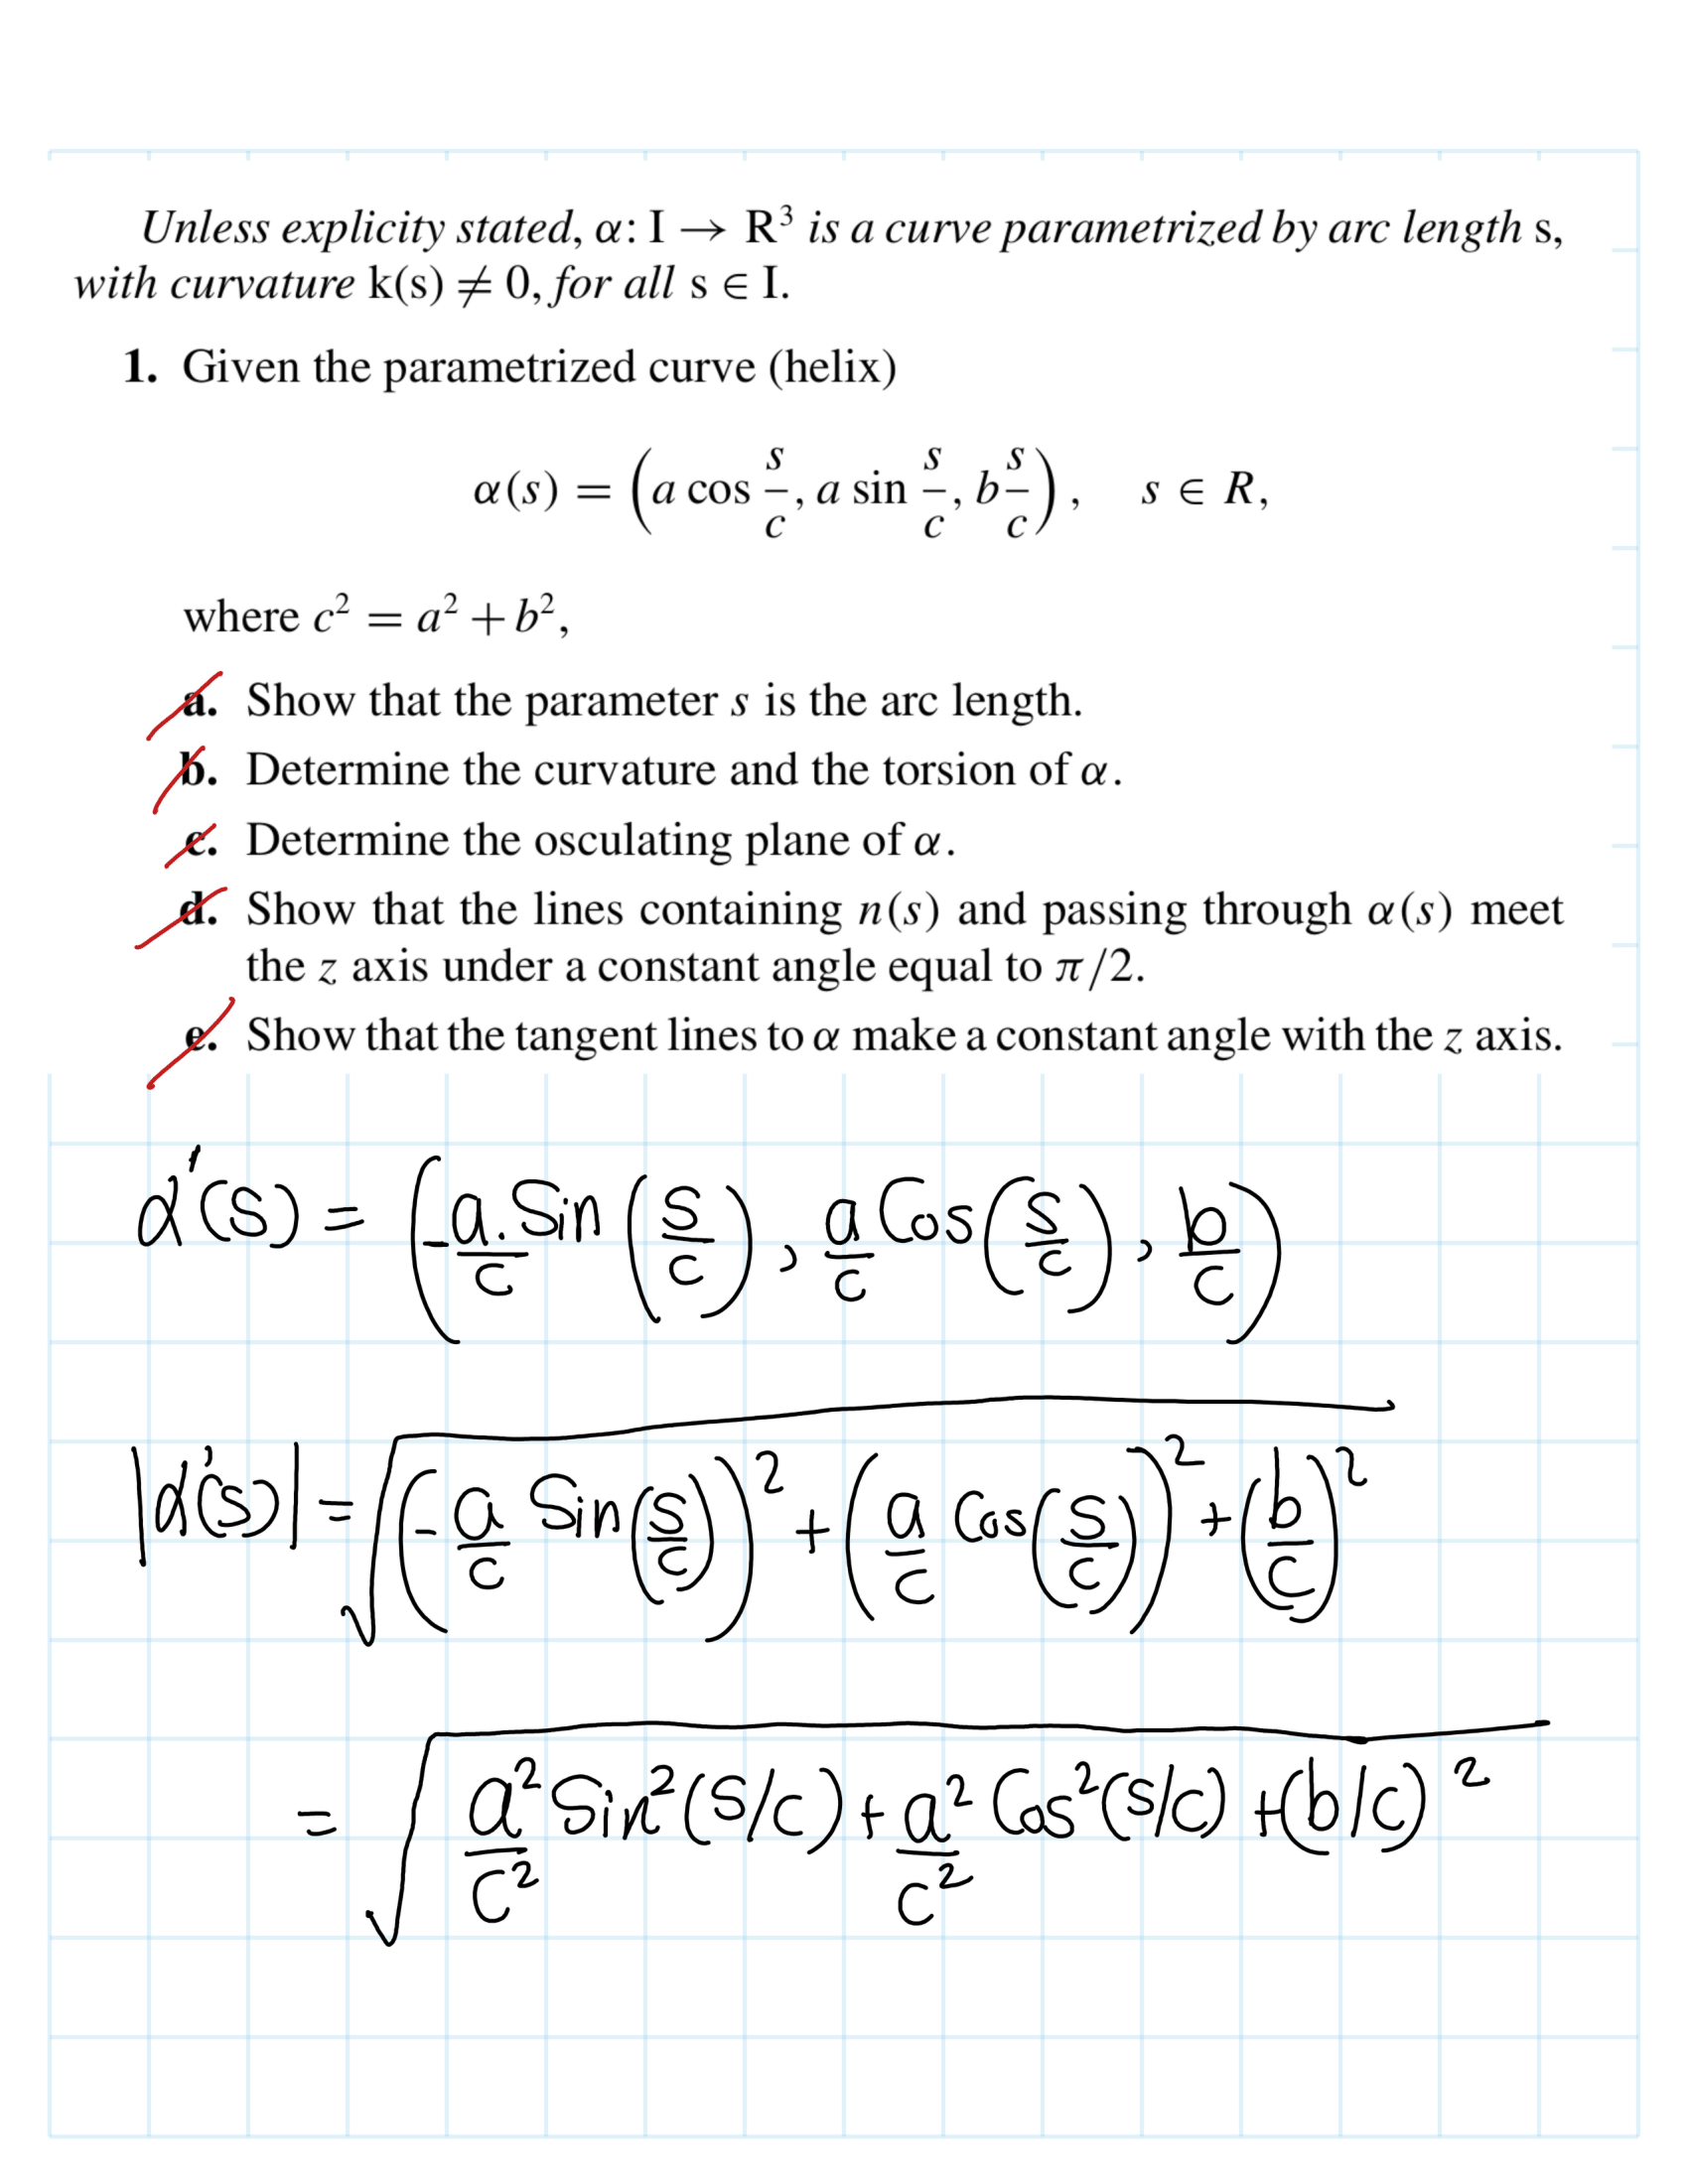 Unless explicity stated, α: I → R³ is a curve parametrized by arc length s,
with curvature k(s) ≠ 0, for all s ∈ I.
1. Given the parametrized curve (helix)
α(s) = (a cos s/c, a sin s/c, b s/c), s ∈ R,
where c² = a² + b²,
a. Show that the parameter s is the arc length.
b. Determine the curvature and the torsion of α.
c. Determine the osculating plane of α.
d. Show that the lines containing n(s) and passing through α(s) meet
the z axis under a constant angle equal to π/2.
e. Show that the tangent lines to α make a constant angle with the z axis.
α'(s) = (-a/c . Sin (s/c), a/c Cos (s/c), b/c)
|α'(s)| = √((-a/c Sin (s/c))² + (a/c Cos (s/c))² + (b/c)²)
= √(a²/c² Sin² (s/c) + a²/c² Cos² (s/c) + (b/c)²)